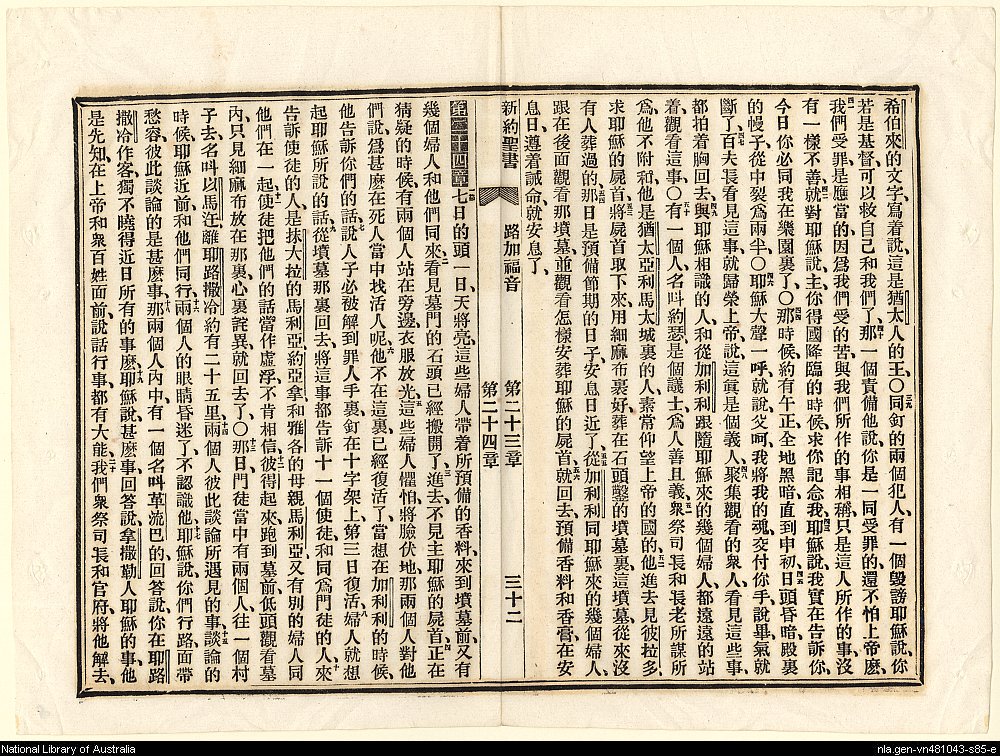 希伯來的文字、寫着說、這是猶太人的王、〇三九同釘的兩個犯人、有一個毀謗耶穌說、你
若是基督、可以救自己和我們了、四十那一個責備他說、你是一同受罪的、還不怕上帝麽、
四一我們受罪、是應當的、因爲我們受的苦、與我們所作的事相稱、只是這人所作的事、沒
有一樣不善、四二就對耶穌說、主你得國降臨的時候、求你記念我、四三耶穌說、我實在告訴你、
今日你必同我在樂園裏了、〇四四那時候約有午正、全地黑暗、直到申初、四五日頭昏暗、殿裏
的幔子、從中裂爲兩半、〇四六耶穌大聲一呼、就說、父呵、我將我的魂、交付你手、說畢、氣就
斷了、四七百夫長看見這事、就歸榮上帝說、這眞是個義人、四八聚集觀看的衆人、看見這些事、
都拍着胸回去、四九與耶穌相識的人、和從加利利跟隨耶穌來的幾個婦人、都遠遠的站
着觀看這事、〇五十有一個人、名叫約瑟、是個議士、爲人善且義、五一衆祭司長和長老所謀所
爲、他不附和、他是猶太亞利馬太城裏的人、素常仰望上帝的國的、五二他進去見彼拉多、
求耶穌的屍首、五三將屍首取下來、用細麻布裹好、葬在石頭鑿的墳墓裏、這墳墓從來沒
有人葬過的、五四那日是預備節期的日子、安息日近了、五五從加利利同耶穌來的幾個婦人、
跟在後面、觀看那墳墓、並觀看怎樣安葬耶穌的屍首、五六就回去、預備香料和香膏、在安
息日、遵着誡命、就安息了、
新約聖書 路加福音 第二十三章 第二十四章 三十二
第二十四章 一七日的頭一日、天將亮、這些婦人帶着所預備的香料、來到墳墓前、又有
幾個婦人、和他們同來、二看見墓門的石頭、已經搬開了、三進去、不見主耶穌的屍首、四正在
猜疑的時候、有兩個人站在旁邊、衣服放光、五這些婦人懼怕、將臉伏地、那兩個人對他
們說、爲甚麽在死人當中找活人呢、六他不在這裏、已經復活了、當想在加利利的時候、
他告訴你們的話、七說人子必被解到罪人手裏、釘在十字架上、第三日復活、八婦人就想
起耶穌所說的話、九從墳墓那裏回去、將這事都告訴十一個使徒、和同爲門徒的人、十來
告訴使徒的人、是抹大拉的馬利亞、約亞拿、和雅各的母親馬利亞、又有別的婦人、同
他們在一起、十一使徒把他們的話、當作虛浮、不肯相信、十二彼得起來、跑到墓前、低頭觀看墓
內、只見細麻布放在那裏、心裏詫異、就回去了、〇十三那日門徒當中有兩個人、往一個村
子去、名叫以馬迕、離耶路撒冷約有二十五里、十四兩個人彼此談論所遇見的事、十五談論的
時候、耶穌近前和他們同行、十六兩個人的眼睛昏迷了、不認識他、十七耶穌說、你們行路面帶
愁容、彼此談論的是甚麽事、十八那兩個人內中、有一個名叫革流巴的、回答說、你在耶路
撒冷作客、獨不曉得近日所有的事麽、十九耶穌說、甚麽事、回答說、拿撒勒人耶穌的事、他
是先知、在上帝和衆百姓面前、說話行事、都有大能、二十我們衆祭司長和官府、將他解去、
National Library of Australia
nla.gen-vn481043-s85-e